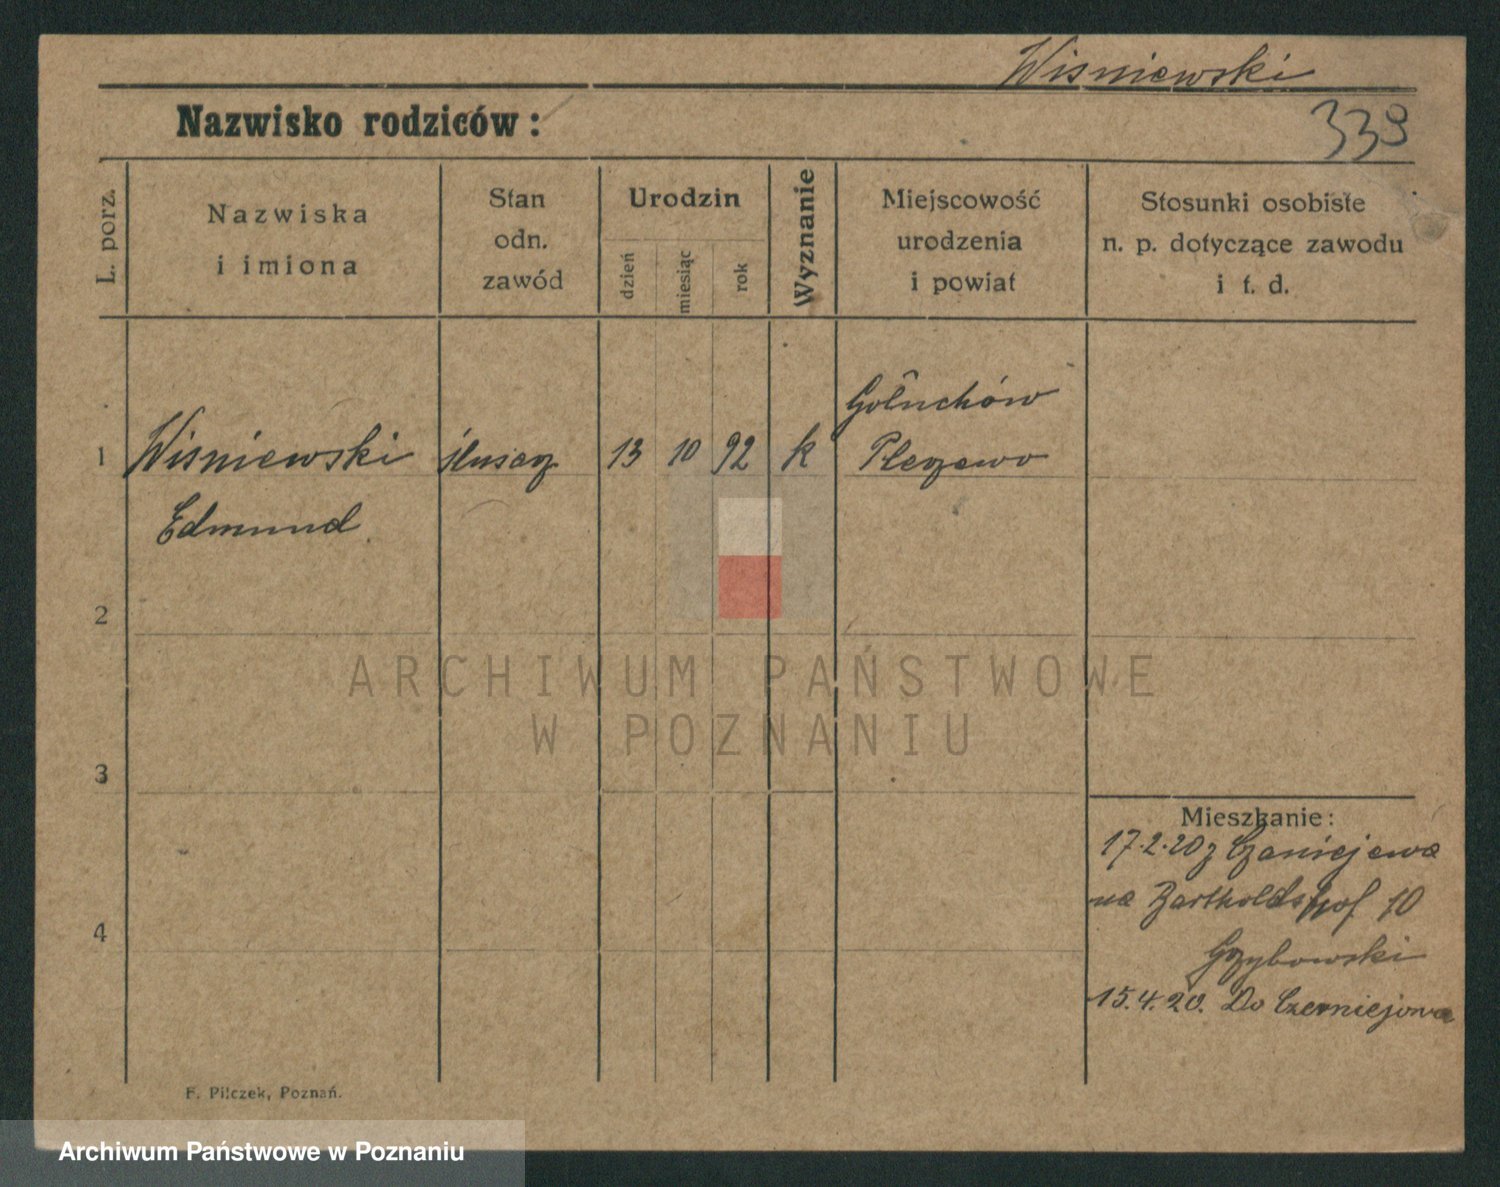 Wisniewski
Nazwisko rodziców:
339
L. porz.
Nazwiska
i imiona
Stan
odn.
zawód
Urodzin
dzień
miesiąc
rok
Wyznanie
Miejscowość
urodzenia
i powiat
Stosunki osobiste
n. p. dotyczące zawodu
i t. d.
1
Wisniewski
Edmund
ślusarz
13
10
92
k
Gołuchów
2
ARCHIWUM PAŃSTWOWE
W POZNANIU
3
Mieszkanie:
17.2.20 z
na Bartholdshof 10
4
Grzybowski
15.4.20. Do Czerniejewa
F. Pilczek, Poznań.
Archiwum Państwowe w Poznaniu